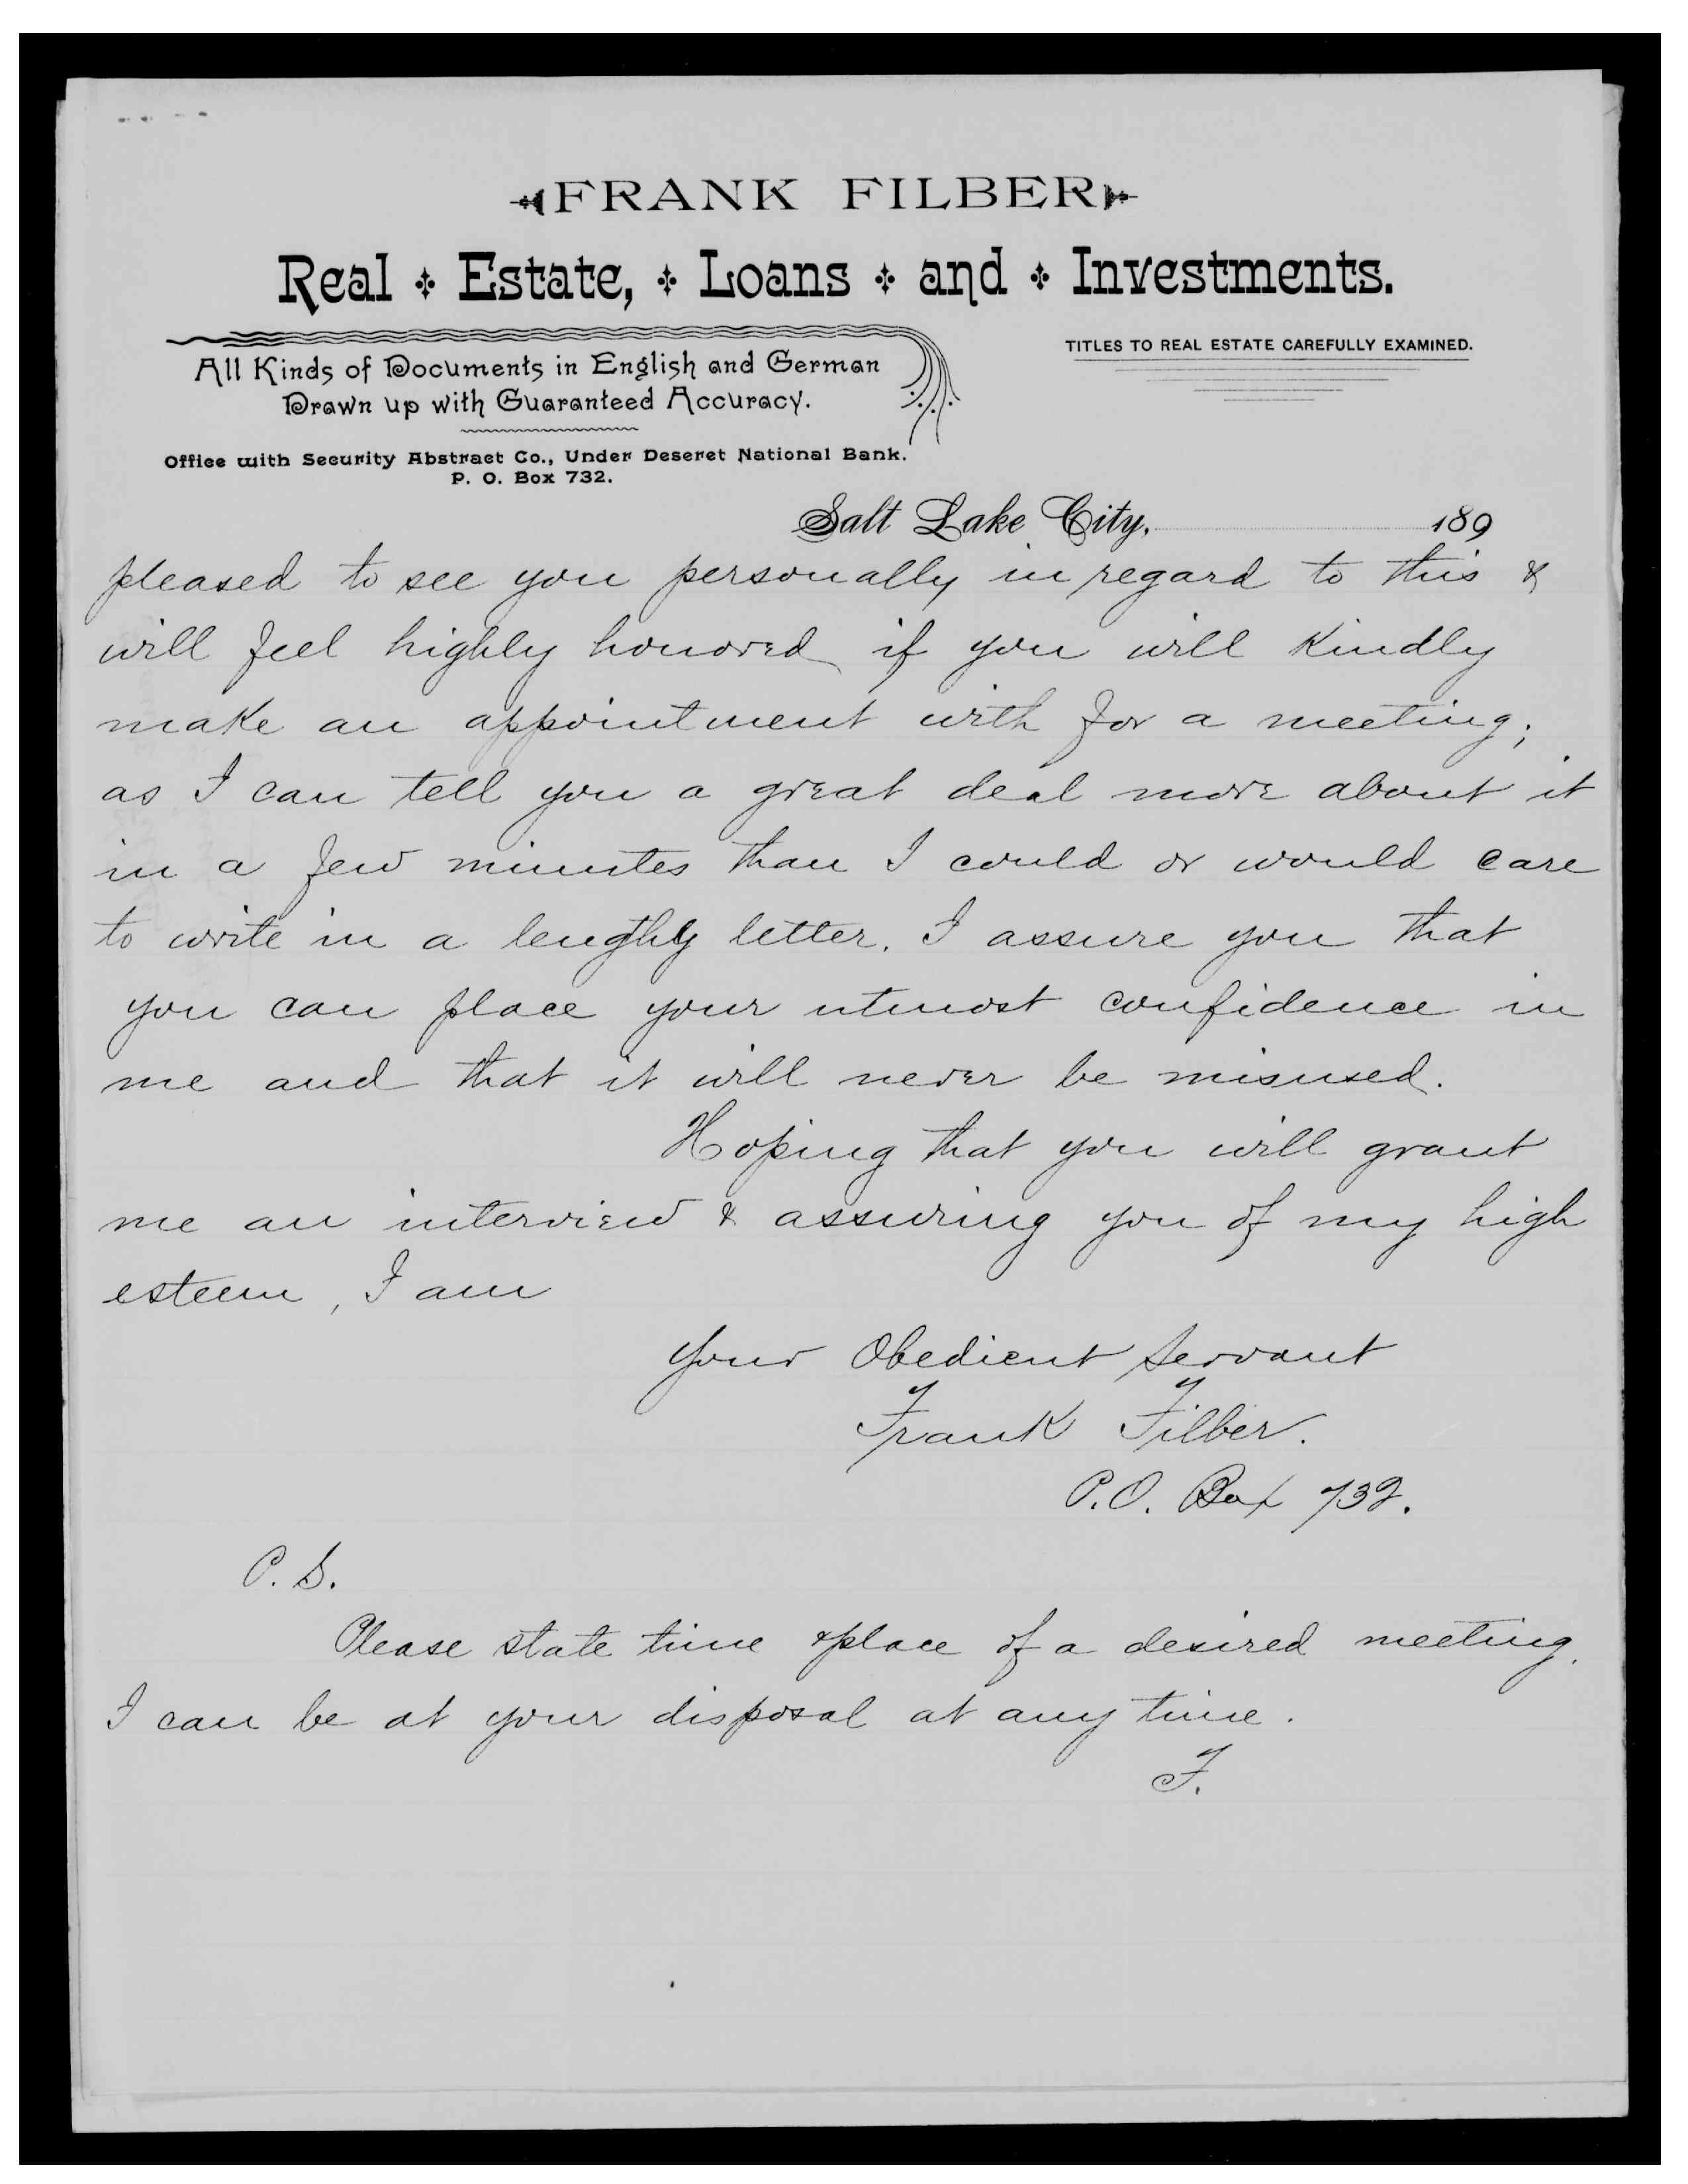 FRANK FILBER
Real Estate, Loans and Investments.
TITLES TO REAL ESTATE CAREFULLY EXAMINED.
All Kinds of Documents in English and German
Drawn up with Guaranteed Accuracy.
Office with Security Abstract Co., Under Deseret National Bank.
P. O. Box 732.
Salt Lake City, 189
pleased to see you personally in regard to this &
will feel highly honored if you will kindly
make an appointment with for a meeting;
as I can tell you a great deal more about it
in a few minutes than I could or would care
to write in a lenghty letter. I assure you that
you can place your utmost confidence in
me and that it will never be misused.
Hoping that you will grant
me an interview & assuring you of my high
esteem, I am
Your Obedient Servant
Frank Filber.
P.O. Box 732.
P.S.
Please state time & place of a desired meeting.
I can be at your disposal at any time.
F.